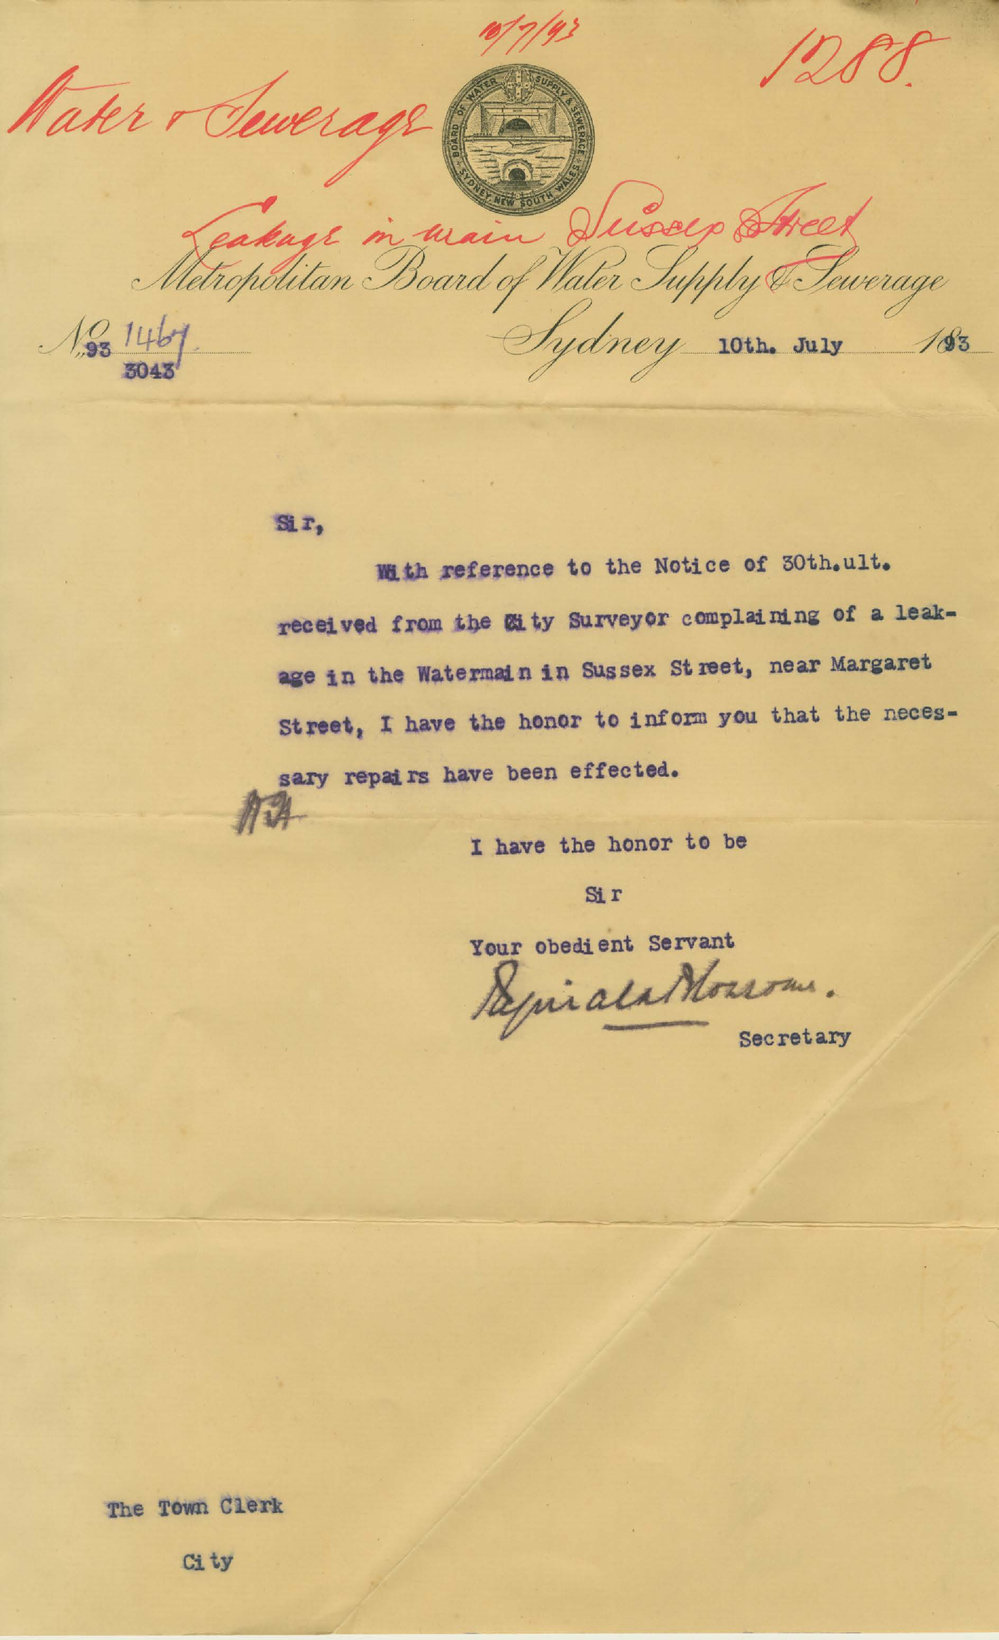 10/7/93
1288.
Water & Sewerage
BOARD OF WATER SUPPLY & SEWERAGE
SYDNEY, NEW SOUTH WALES
Leakage in main Sussex Street
Metropolitan Board of Water Supply & Sewerage
No. 93 1467
3043
Sydney 10th. July 1893
Sir,
With reference to the Notice of 30th.ult.
received from the City Surveyor complaining of a leak-
age in the Watermain in Sussex Street, near Margaret
Street, I have the honor to inform you that the neces-
sary repairs have been effected.
I have the honor to be
Sir
Your obedient Servant
Secretary
The Town Clerk
City